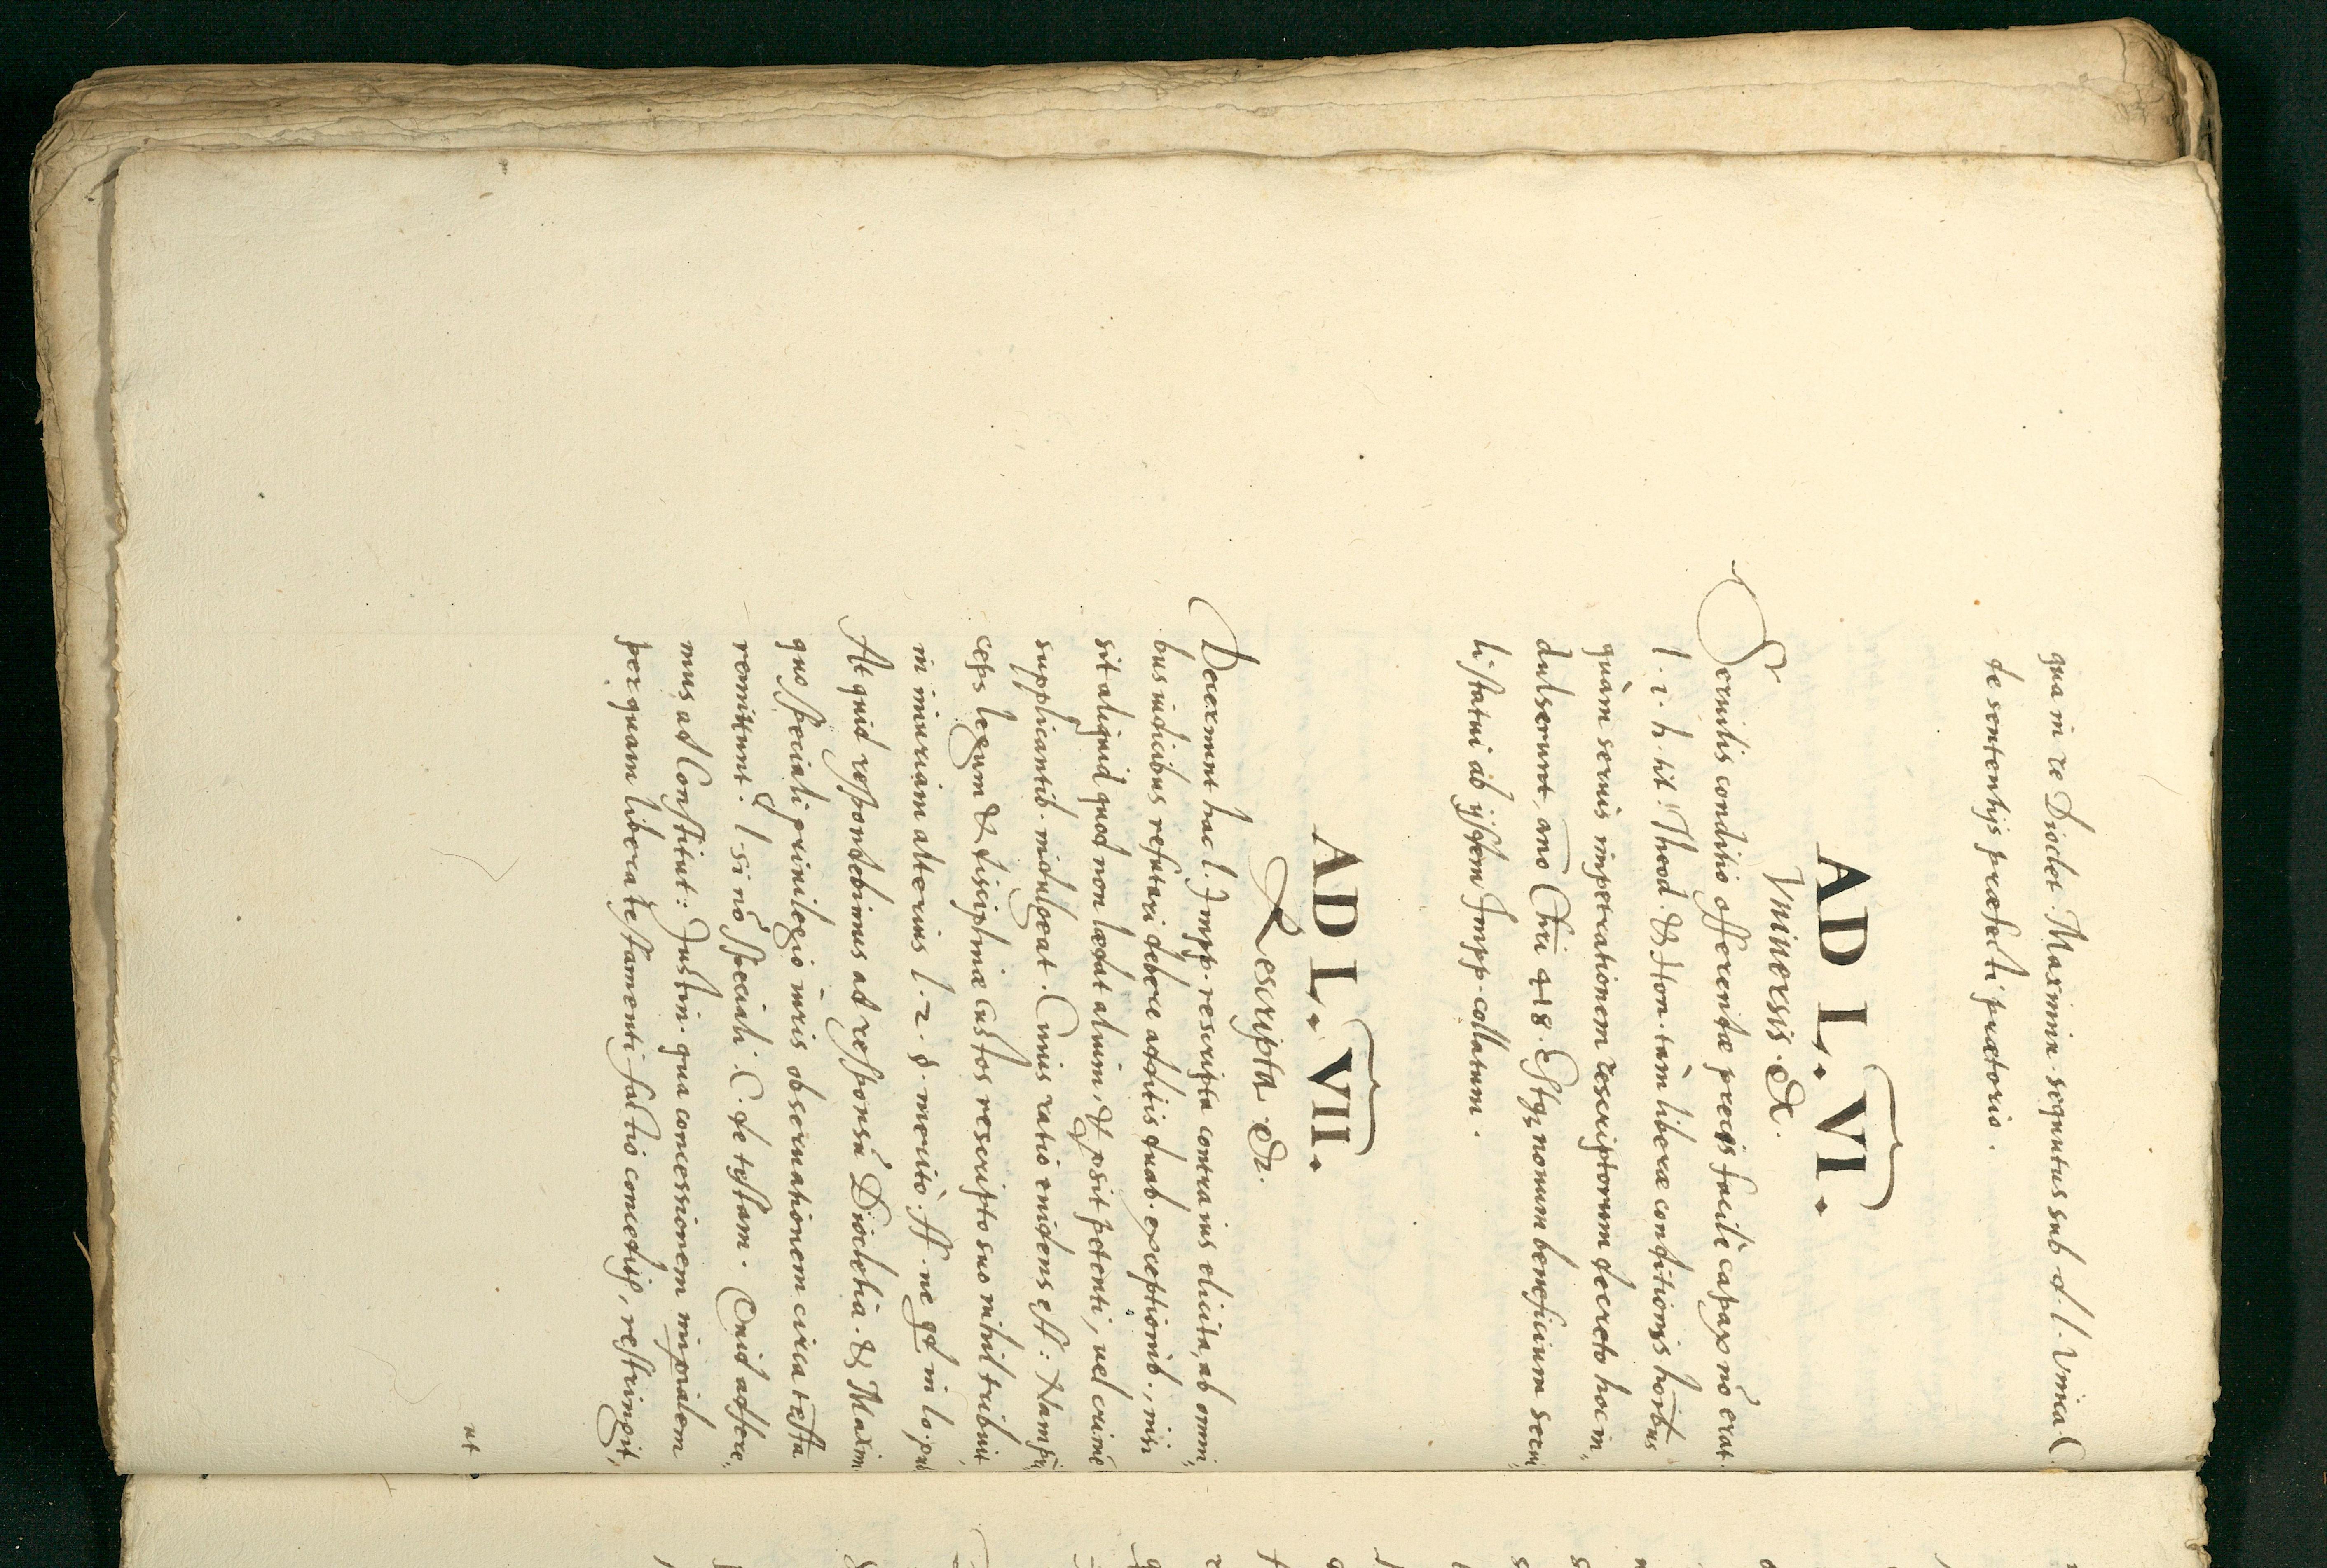 qua in re Dioclet. Maximin. sequutus sub d. l. Vnica. C.
de sententijs præfecti prætorio.
AD L. VI.
Vniversis. &.
Seruilis conditio offerentæ precis facilè capax nō erat.
l. i. h. tit. Theod. & Hon. tàm liberæ conditionis hoībus
quàm seruis impetrationem rescriptorum decreto hoc in,,
dulserunt, año Chri 418. Estqʒ nouum beneficium serui,,
li statui ab ijsdem Impp. collatum.
AD L. VII.
Rescripta. &.
Decernunt hac l. Impp. rescripta contra ius elicita, ab omni,,
bus iudicibus refutari debere additis duab. exceptionib., nisi
sit aliquid quod non lædat alium, & prosit petenti, uel crimē
supplicantib. indulgeat. Cuius ratio euidens est: Nam prī
ceps legum & disciplinæ Custos rescripto suo nihil tribuit,
in iniuriam alterius l. 2. §. meritò. ff. ne qd in lo. pub
At quid respondebimus ad responsū Diocletia. & Maxim
quo speciali priuilegio iuris obseruationem circa testa
remittunt. d. l. si nō speciali. C. de testam. Quid adfere,,
mus ad Constitut: Justin. qua concessionem imperialem
per quam libera testamenti factio concedit, restringit,
ut